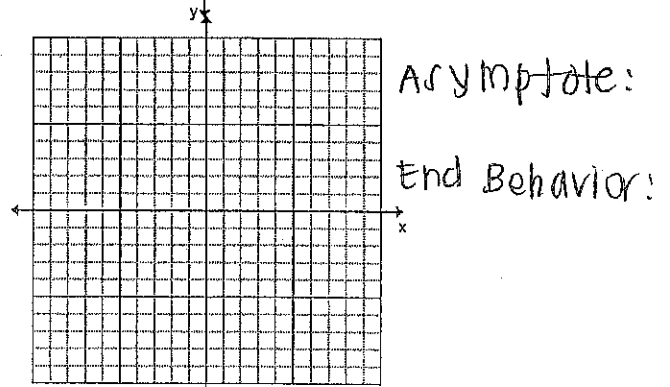 y
Asymptote:
End Behavior:
x